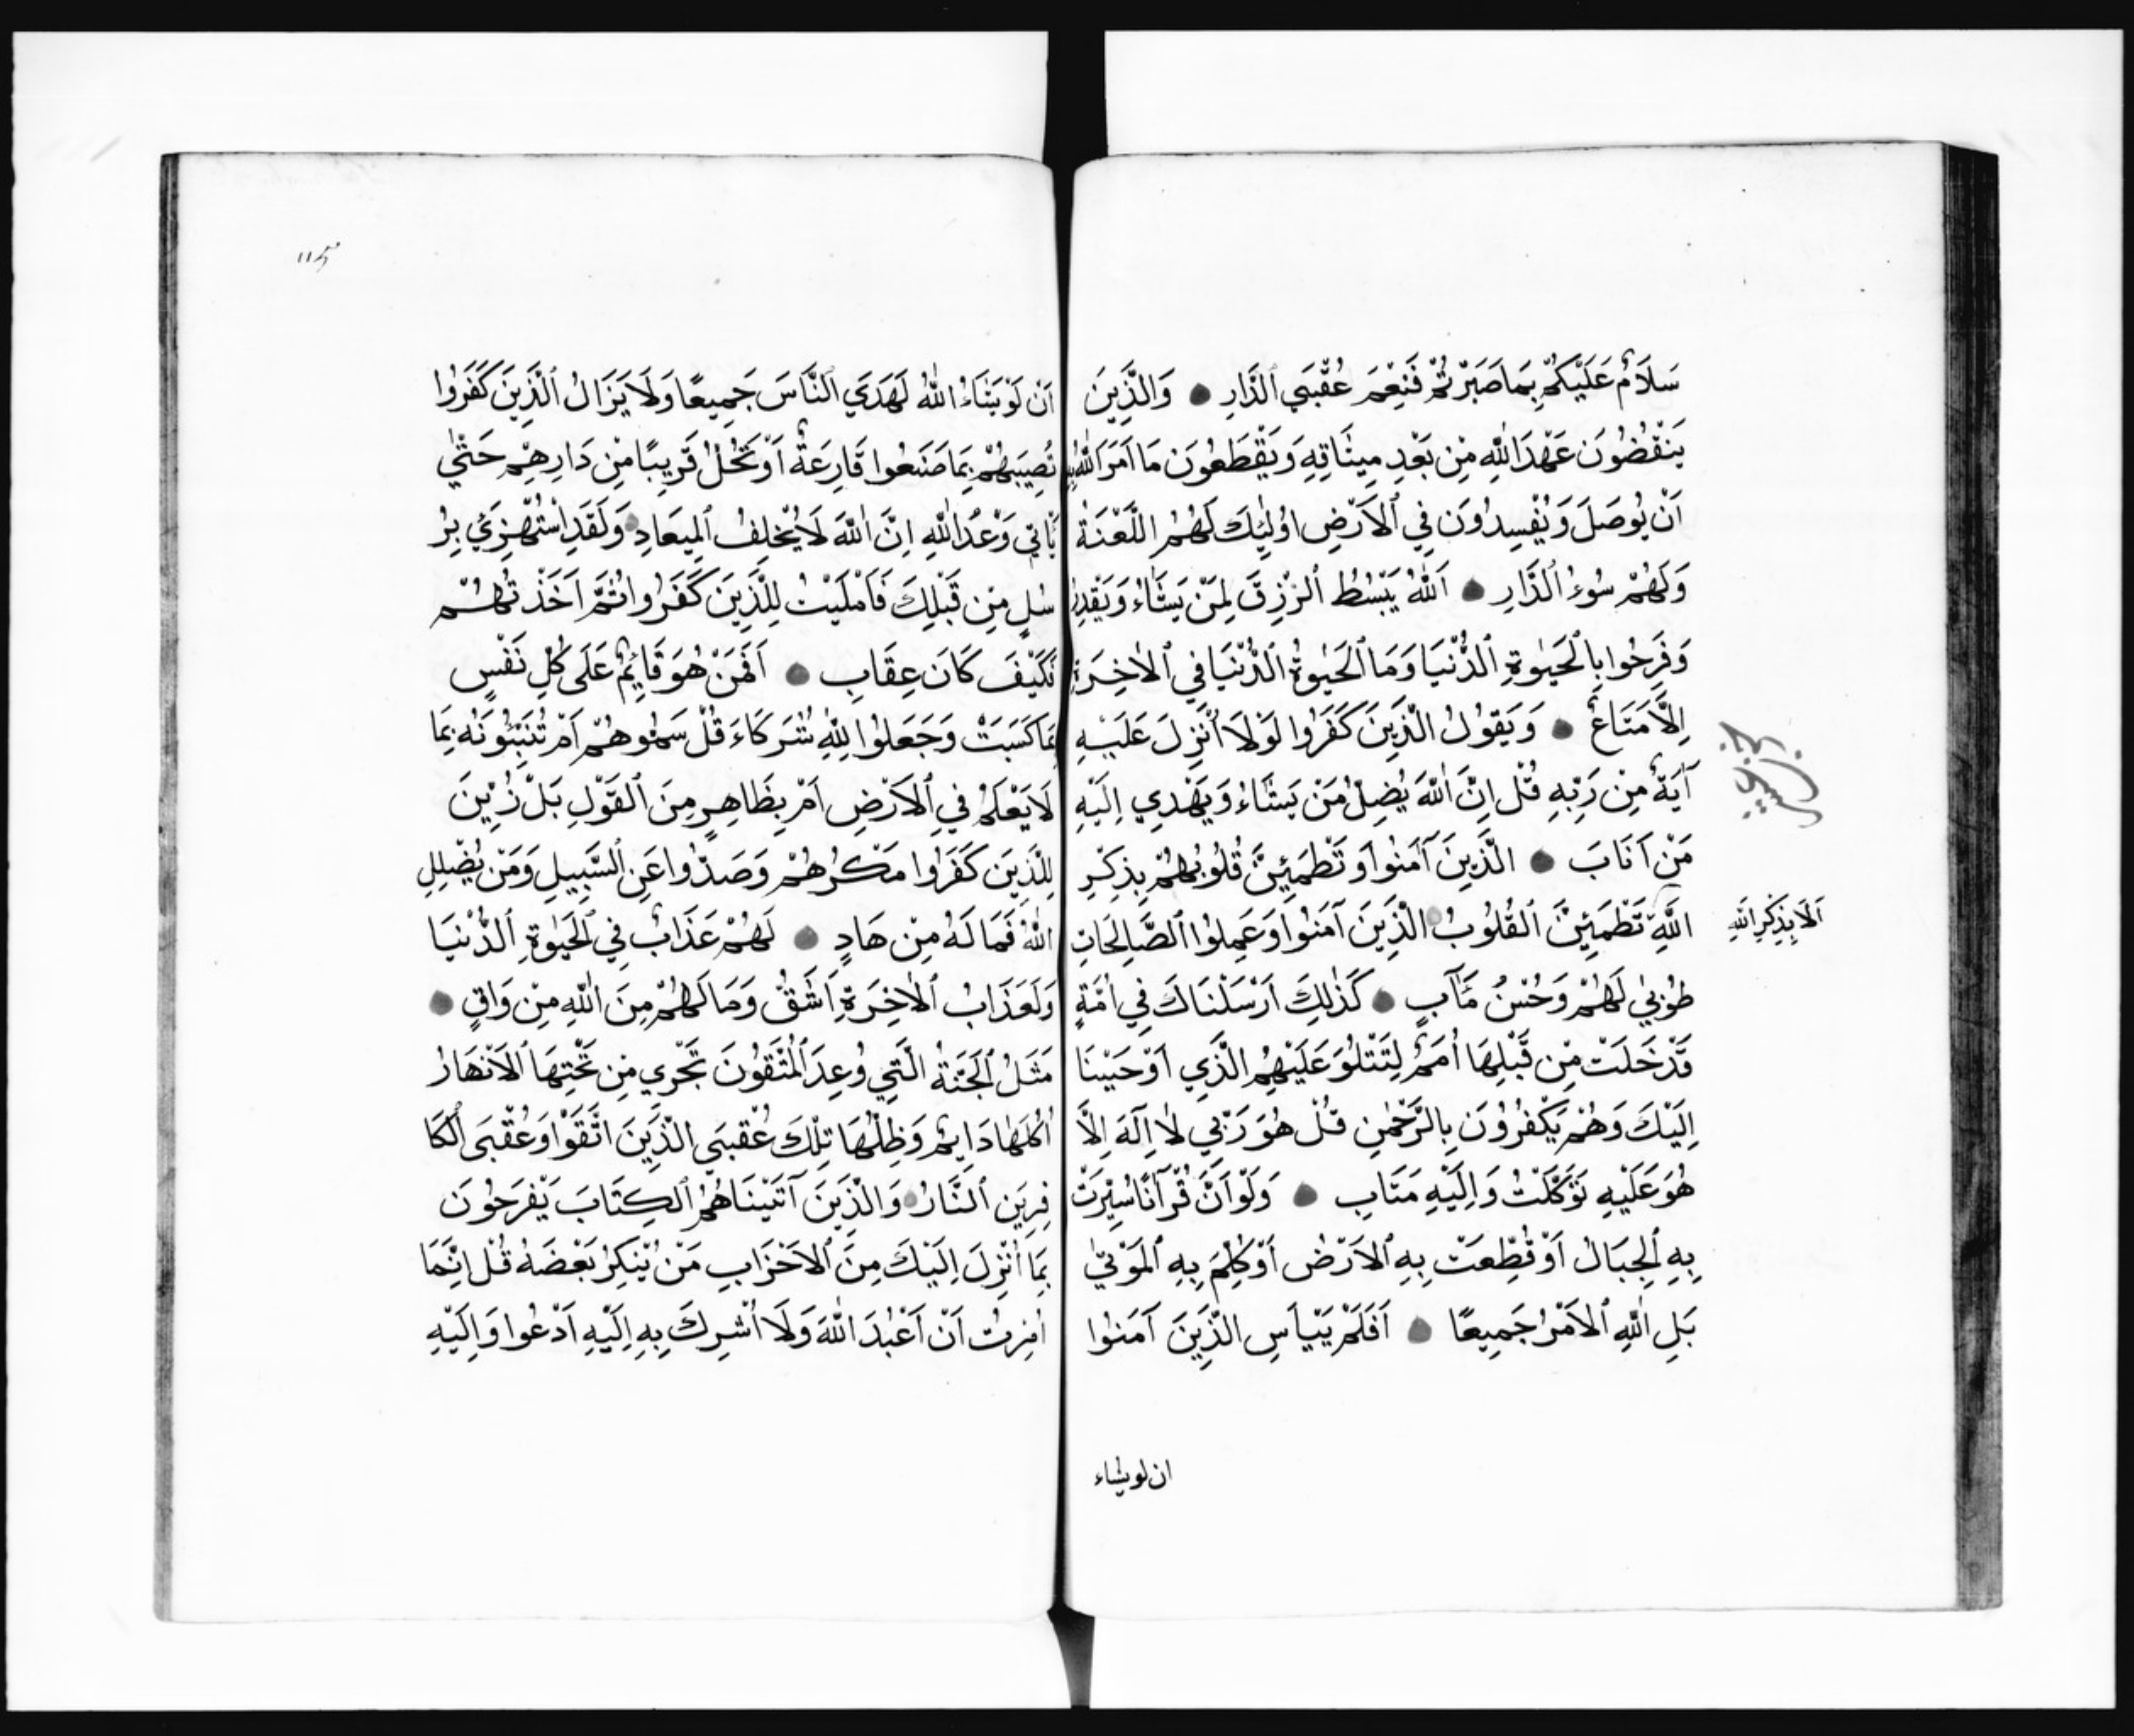 سَلَامٌ عَلَيْكُمْ بِمَا صَبَرْتُمْ فَنِعْمَ عُقْبَي ٱلدَّارِ ● وَالَّذِينَ
يَنْقُضُونَ عَهْدَ اللّٰهِ مِنْ بَعْدِ مِيثَاقِهِ وَيَقْطَعُونَ مَا اَمَرَ اللّٰهُ بِهِ
اَنْ يُوصَلَ وَيُفْسِدُونَ فِي ٱلاَرْضِ اوُلٰئِكَ لَهُمُ اللَّعْنَةُ
وَلَهُمْ سُوءُ ٱلدَّارِ ● اَللّٰهُ يَبْسُطُ ٱلرِّزْقَ لِمَنْ يَشَاءُ وَيَقْدِرُ
وَفَرِحُوا بِالْحَيٰوةِ ٱلدُّنْيَا وَمَا ٱلْحَيٰوةُ ٱلدُّنْيَا فِي ٱلاٰخِرَةِ
اِلاَّ مَتَاعٌ ● وَيَقُولُ الَّذِينَ كَفَرُوا لَوْلَا اُنْزِلَ عَلَيْهِ
آيَةٌ مِنْ رَبِّهِ قُلْ اِنَّ اللّٰهَ يُضِلُّ مَنْ يَشَاءُ وَيَهْدِي اِلَيْهِ
مَنْ اَنَابَ ● الَّذِينَ آمَنُوا وَتَطْمَئِنُّ قُلُوبُهُمْ بِذِكْرِ
اللّٰهِ تَطْمَئِنُّ ٱلقُلُوبُ ● الَّذِينَ آمَنُوا وَعَمِلُوا ٱلصَّالِحَاتِ
اَلَا بِذِكْرِ اللّٰهِ
طُوبٰي لَهُمْ وَحُسْنُ مَآبٍ ● كَذٰلِكَ اَرْسَلْنَاكَ فِي اُمَّةٍ
قَدْ خَلَتْ مِنْ قَبْلِهَا اُمَمٌ لِتَتْلُوَ عَلَيْهِمُ الَّذِي اَوْحَيْنَا
اِلَيْكَ وَهُمْ يَكْفُرُونَ بِالرَّحْمٰنِ قُلْ هُوَ رَبِّي لاٰ اِلٰهَ اِلاَّ
هُوَ عَلَيْهِ تَوَكَّلْتُ وَاِلَيْهِ مَتَابِ ● وَلَوْ اَنَّ قُرْآنًا سُيِّرَتْ
بِهِ ٱلْجِبَالُ اَوْ قُطِّعَتْ بِهِ ٱلاَرْضُ اَوْ كُلِّمَ بِهِ ٱلمَوْتٰي
بَلِ اللّٰهِ ٱلاَمْرُ جَمِيعًا ● اَفَلَمْ يَيْاَسِ الَّذِينَ آمَنُوا
ان لو يشاء
اَنْ لَوْ يَشَاءُ اللّٰهُ لَهَدَي ٱلنَّاسَ جَمِيعًا وَلَا يَزَالُ ٱلَّذِينَ كَفَرُوا
تُصِيبُهُمْ بِمَا صَنَعُوا قَارِعَةٌ اَوْ تَحُلُّ قَرِيبًا مِنْ دَارِهِمْ حَتّٰي
يَاْتِي وَعْدُ اللّٰهِ اِنَّ اللّٰهَ لَا يُخْلِفُ ٱلمِيعَادِ ● وَلَقَدِ اسْتُهْزِئَ بِرُ
سُلٍ مِنْ قَبْلِكَ فَاَمْلَيْتُ لِلَّذِينَ كَفَرُوا ثُمَّ اَخَذْتُهُمْ
فَكَيْفَ كَانَ عِقَابِ ● اَفَمَنْ هُوَ قَائِمٌ عَلَى كُلِّ نَفْسٍ
بِمَا كَسَبَتْ وَجَعَلُوا لِلّٰهِ شُرَكَاءَ قُلْ سَمُّوهُمْ اَمْ تُنَبِّئُونَهُ بِمَا
لَا يَعْلَمُ فِي ٱلاَرْضِ اَمْ بِظَاهِرٍ مِنَ ٱلقَوْلِ بَلْ زُيِّنَ
لِلَّذِينَ كَفَرُوا مَكْرُهُمْ وَصَدُّوا عَنِ ٱلسَّبِيلِ وَمَنْ يُضْلِلِ
اللّٰهُ فَمَا لَهُ مِنْ هَادٍ ● لَهُمْ عَذَابٌ فِي ٱلحَيٰوةِ ٱلدُّنْيَا
وَلَعَذَابُ ٱلاٰخِرَةِ اَشَقُّ وَمَا لَهُمْ مِنَ اللّٰهِ مِنْ وَاقٍ ●
مَثَلُ ٱلْجَنَّةِ الَّتِي وُعِدَ ٱلْمُتَّقُونَ تَجْرِي مِنْ تَحْتِهَا ٱلاَنْهَارُ
اُكُلُهَا دَائِمٌ وَظِلُّهَا تِلْكَ عُقْبَي الَّذِينَ اتَّقَوْا وَعُقْبَى ٱلْكَا
فِرِينَ ٱلنَّارُ ● وَالَّذِينَ آتَيْنَاهُمُ ٱلكِتَابَ يَفْرَحُونَ
بِمَا اُنْزِلَ اِلَيْكَ مِنَ ٱلاَحْزَابِ مَنْ يُنْكِرُ بَعْضَهُ قُلْ اِنَّمَا
اُمِرْتُ اَنْ اَعْبُدَ اللّٰهَ وَلَا اُشْرِكَ بِهِ اِلَيْهِ اَدْعُوا وَاِلَيْهِ